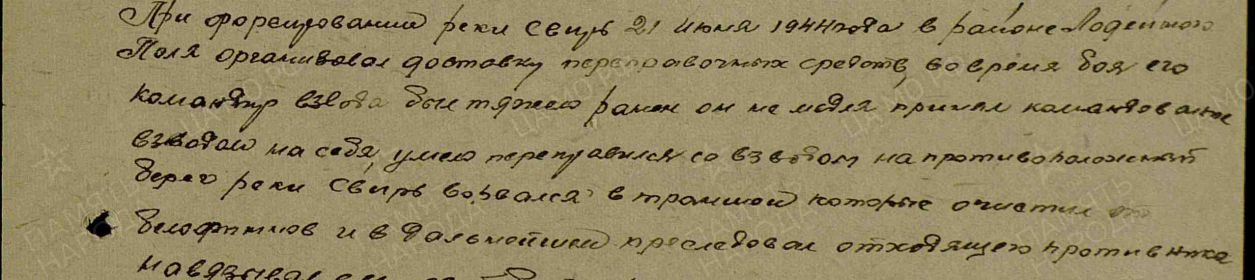 При форсировании реки Свирь 21 июня 1944 года в районе Лодейного
Поля организовал доставку переправочных средств, во время боя его
командир взвода был тяжело ранен он не медля принял командование
взводом на себя, умело переправился со взводом на противоположный
берег реки Свирь ворвался в траншеи которые очистил от
белофиннов и в дальнейшем преследовал отходящего противника
навязывал ему